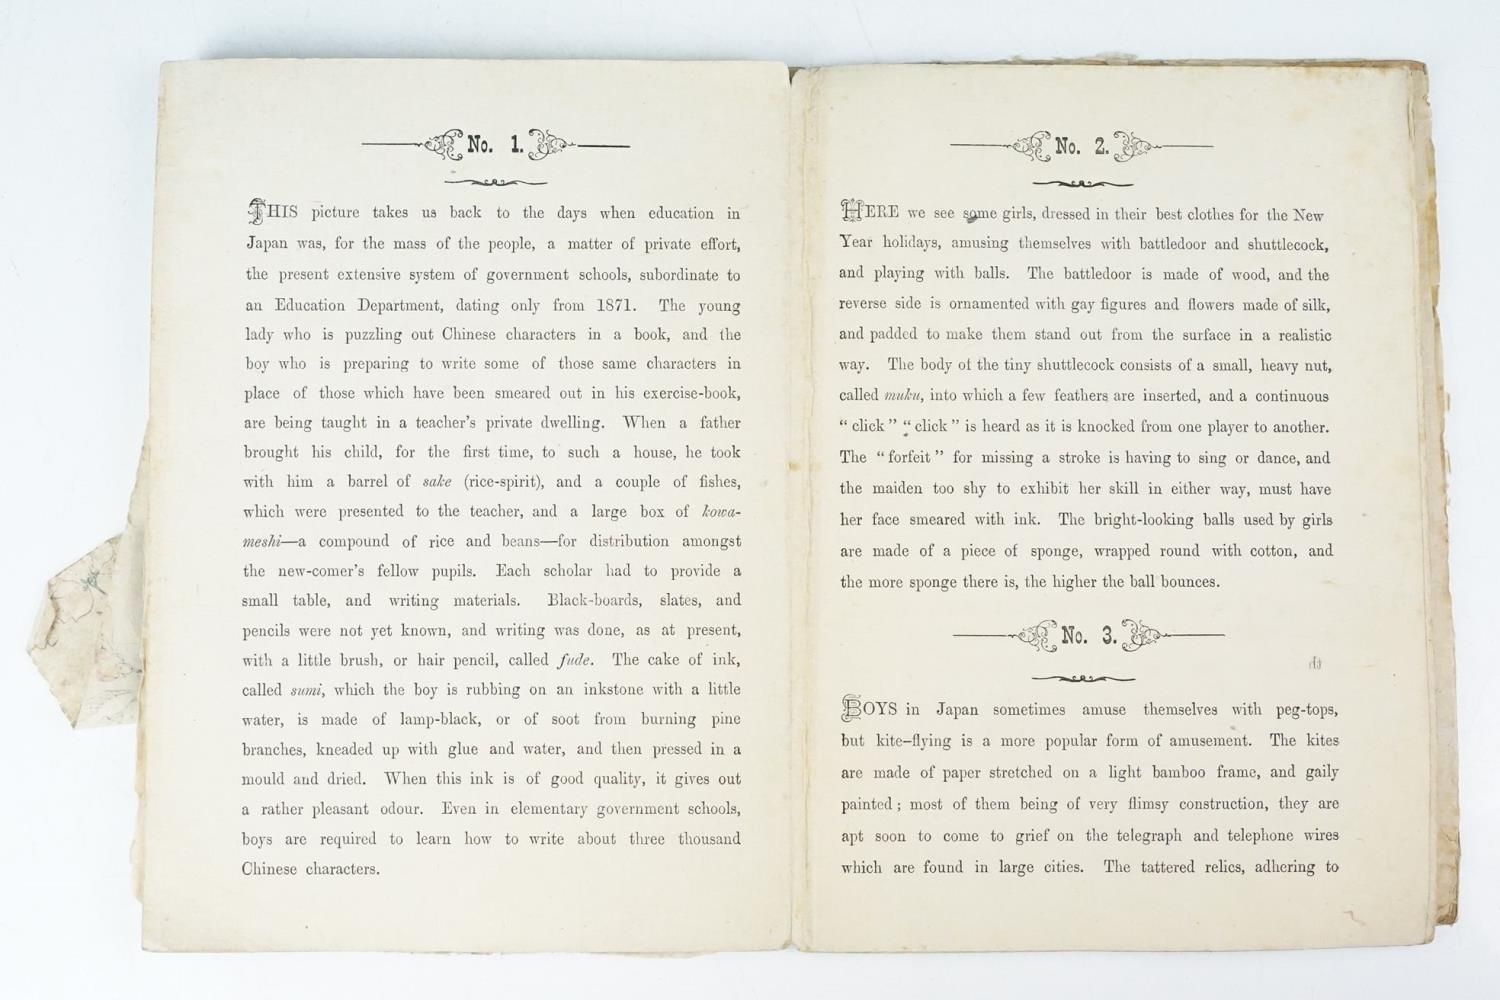 No. 1.
THIS picture takes us back to the days when education in
Japan was, for the mass of the people, a matter of private effort,
the present extensive system of government schools, subordinate to
an Education Department, dating only from 1871. The young
lady who is puzzling out Chinese characters in a book, and the
boy who is preparing to write some of those same characters in
place of those which have been smeared out in his exercise-book,
are being taught in a teacher's private dwelling. When a father
brought his child, for the first time, to such a house, he took
with him a barrel of sake (rice-spirit), and a couple of fishes,
which were presented to the teacher, and a large box of kowa-
meshi—a compound of rice and beans—for distribution amongst
the new-comer's fellow pupils. Each scholar had to provide a
small table, and writing materials. Black-boards, slates, and
pencils were not yet known, and writing was done, as at present,
with a little brush, or hair pencil, called fude. The cake of ink,
called sumi, which the boy is rubbing on an inkstone with a little
water, is made of lamp-black, or of soot from burning pine
branches, kneaded up with glue and water, and then pressed in a
mould and dried. When this ink is of good quality, it gives out
a rather pleasant odour. Even in elementary government schools,
boys are required to learn how to write about three thousand
Chinese characters.
No. 2.
HERE we see some girls, dressed in their best clothes for the New
Year holidays, amusing themselves with battledoor and shuttlecock,
and playing with balls. The battledoor is made of wood, and the
reverse side is ornamented with gay figures and flowers made of silk,
and padded to make them stand out from the surface in a realistic
way. The body of the tiny shuttlecock consists of a small, heavy nut,
called muku, into which a few feathers are inserted, and a continuous
" click " " click " is heard as it is knocked from one player to another.
The " forfeit " for missing a stroke is having to sing or dance, and
the maiden too shy to exhibit her skill in either way, must have
her face smeared with ink. The bright-looking balls used by girls
are made of a piece of sponge, wrapped round with cotton, and
the more sponge there is, the higher the ball bounces.
No. 3.
BOYS in Japan sometimes amuse themselves with peg-tops,
but kite-flying is a more popular form of amusement. The kites
are made of paper stretched on a light bamboo frame, and gaily
painted ; most of them being of very flimsy construction, they are
apt soon to come to grief on the telegraph and telephone wires
which are found in large cities. The tattered relics, adhering to